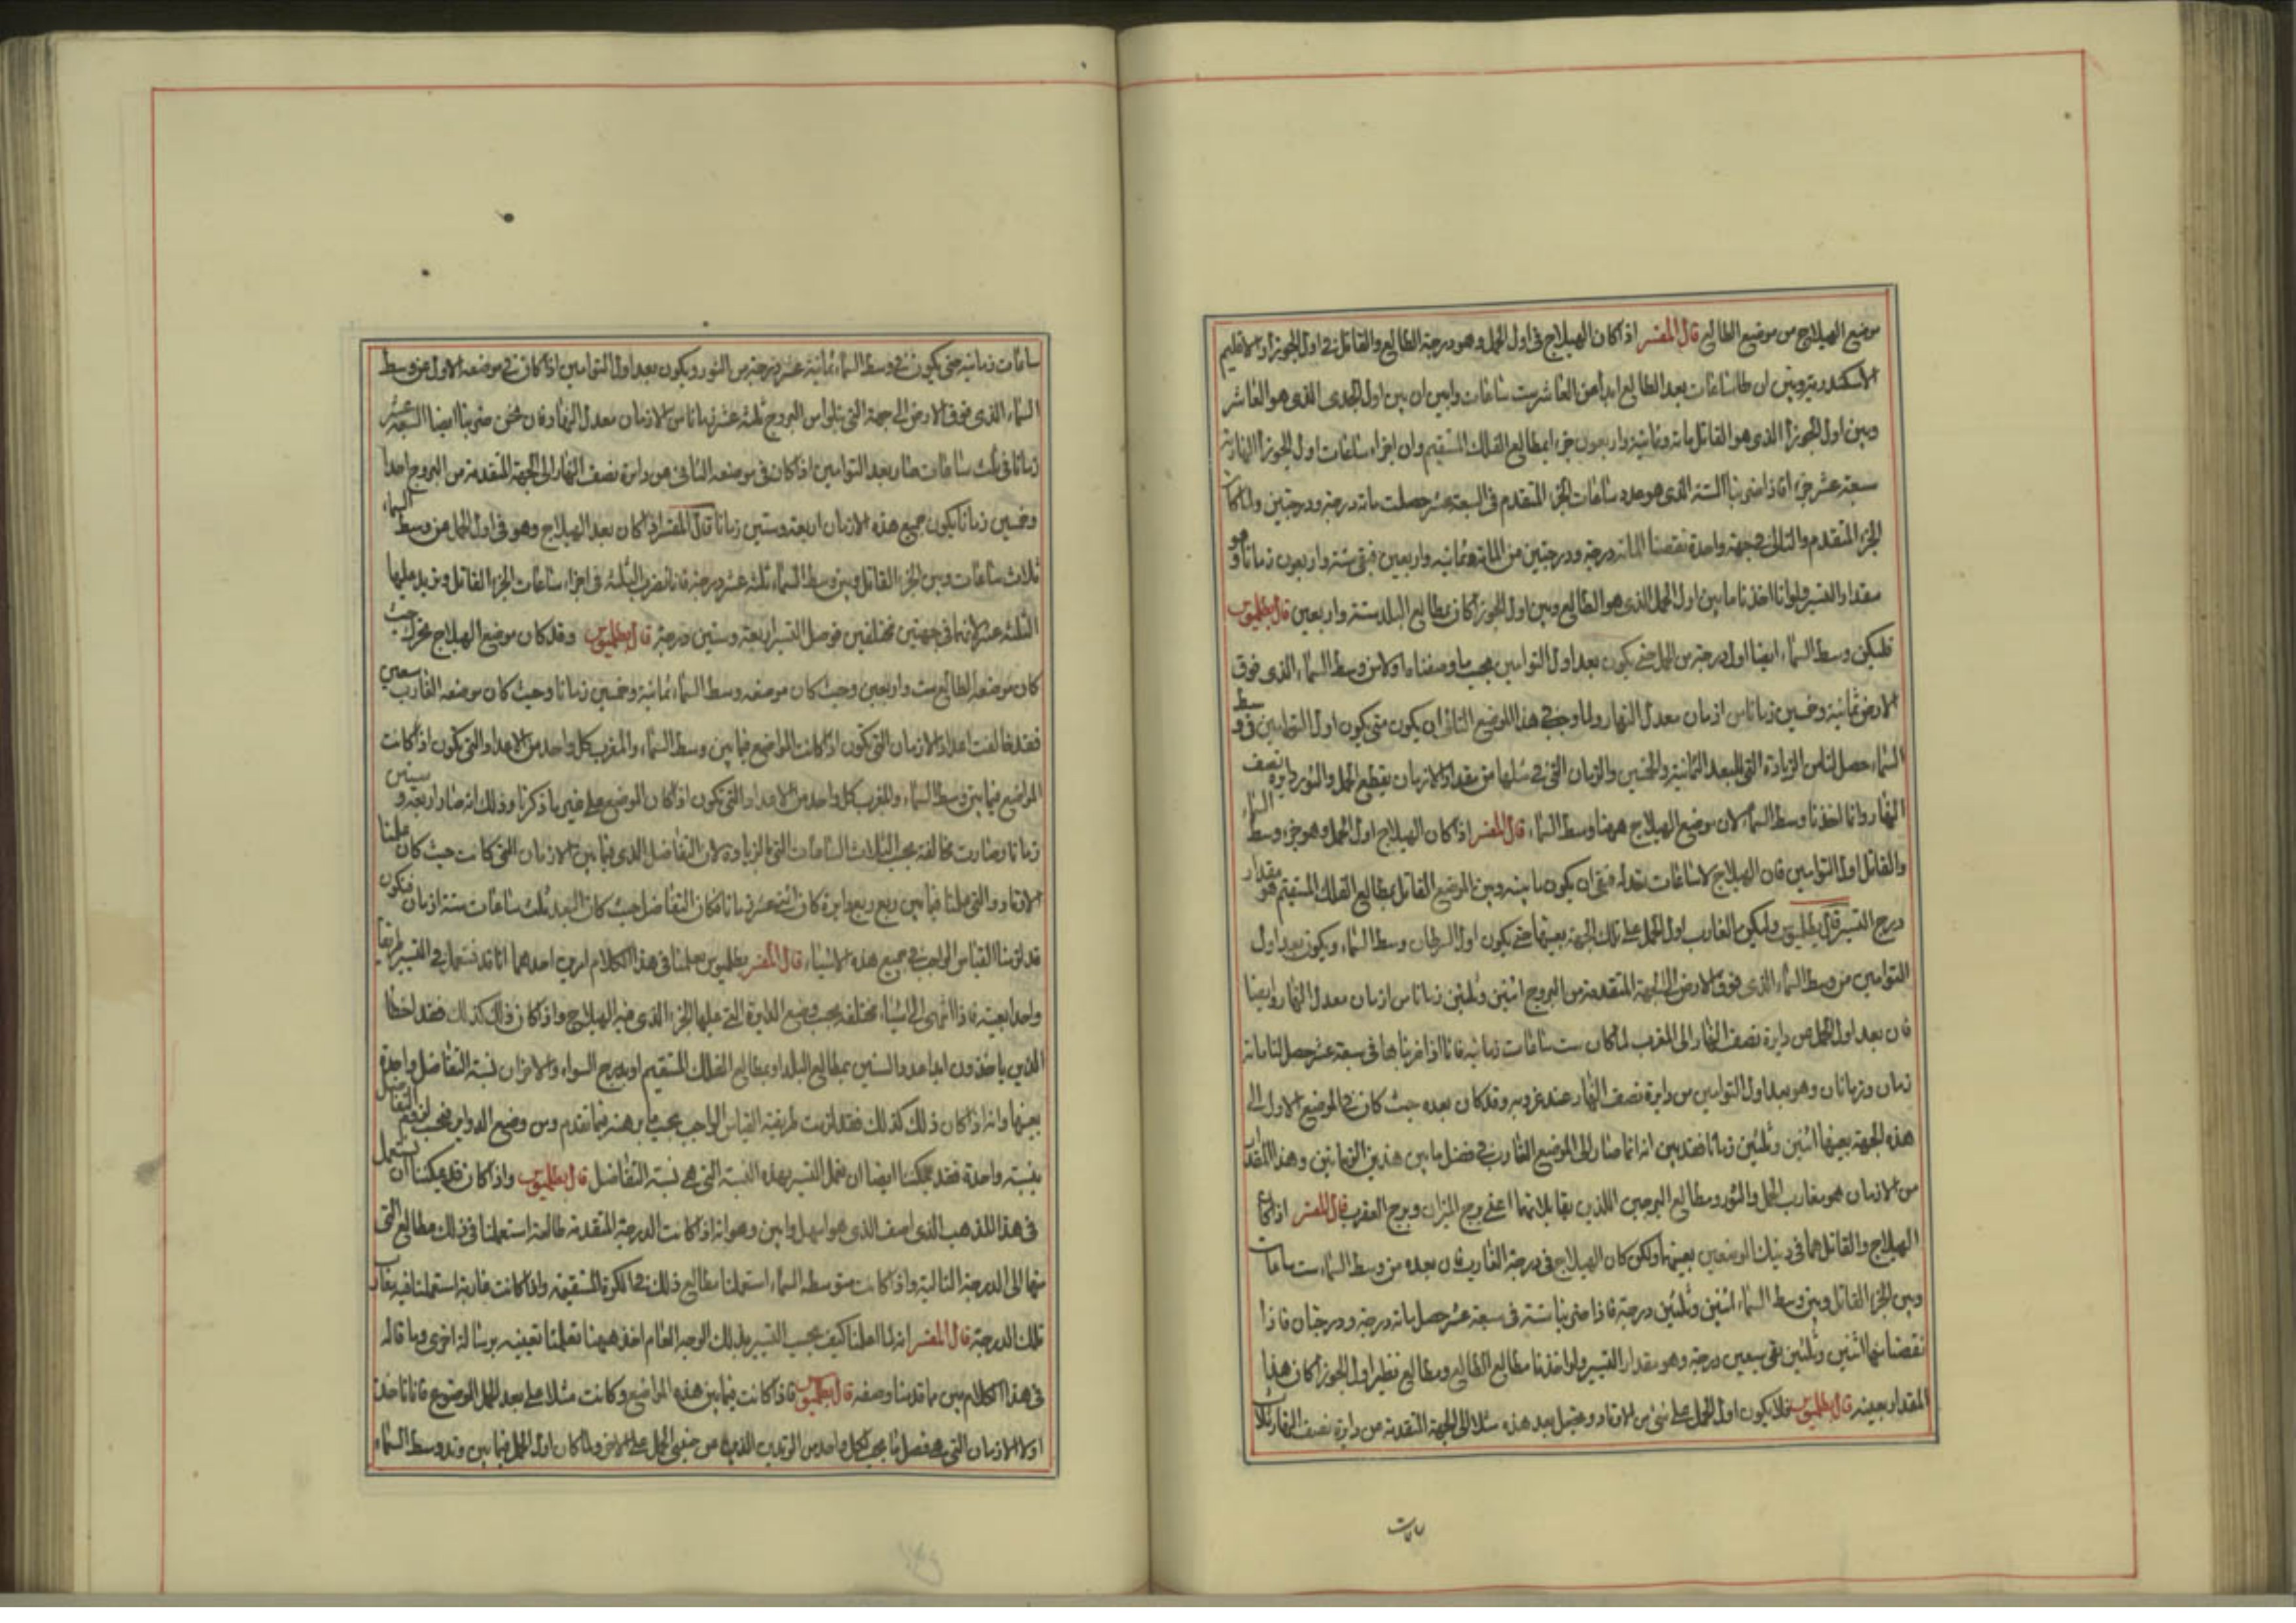 موضع الهيلاج من موضع الطالع قال المفسر اذا كان الهيلاج فى اول الحمل وهو درجة الطالع والقاتل فى اول الجوزا والاقليم
الاسكندرية وبين ان طا ساعات بعد الطالع ابدا من العاشر ست ساعات وابين ان بين اول الجدى الذى هو العاشر
وبين اول الجوزا الذى هو القاتل مائة وثمانية واربعون جزء بمطالع الفلك المستقيم وان اجزاء ساعات اول الجوزا النهارية
سبعة عشر جزء فاذا ضربنا الستة الذى هو عدد ساعات الجزء المتقدم فى السبعة عشر حصلت مائة درجة ودرجتين ولما كان
الجزء المتقدم والتالى فى جهة واحدة نقصنا المائة درجة ودرجتين من المائة وثمانية واربعين فبقى ستة واربعون زمانا وهو
مقدار التسير ولو انا اخذنا ما بين اول الحمل الذى هو الطالع وبين اول الجوزا كان بمطالع البلد ستة واربعين قال بطلميوس
فليكن وسط السماء ايضا اول درجة من الحمل حتى يكون بعد اول التوامين بحسب ما وصفناه اولا من وسط السماء الذى فوق
الارض ثمانية وخمسين زمانا من ازمان معدل النهار ولما وجب فى هذا الموضع الثانى ان يكون متى يكون اول التوامين فى وسط
السماء حصل لنا من الزيادة التى للبعد الثمانية والخمسين والزمان التى فى مثلها من مقدار الازمان يقطع الحمل والثور دايرة نصف
النهار وانا اخذنا وسط السماء لان موضع الهيلاج ههنا وسط السماء قال المفسر اذا كان الهيلاج اول الحمل وهو جزء وسط السماء
والقاتل اول التوامين فان الهيلاج لا ساعات بعد له فبقى ان يكون ما بينه وبين الموضع القاتل بمطالع الفلك المستقيم هو مقدار
درج التسير قال بطلميوس وليكن الغارب اول الحمل على تلك الجهة بعينها حتى يكون اول السرطان وسط السماء ويكون بعد اول
التوامين من وسط السماء الذى فوق الارض الى الجهة المتقدمة من البروج اثنين وثلثين زمانا من ازمان معدل النهار وايضا
فان بعد اول الحمل من دايرة نصف النهار الى المغرب لما كان ست ساعات زمانية فانا اذا ضربناها فى سبعة عشر حصل لنا مائة
زمان وزمانان وهو بعد اول التوامين من دايرة نصف النهار عند غروبه وقد كان بعده حيث كان فى الموضع الاول الى
هذه الجهة بعينها اثنين وثلثين زمانا فقد بين انه انما صار الى الموضع الغارب فى فضل ما بين هذين الزمانين وهذا المقدار
من الازمان هو مغارب الحمل والثور ومطالع البرجين اللذين يقابلانهما اعنى برج الميزان وبرج العقرب قال المفسر اذا كان
الهيلاج والقاتل هما فى ذينك الموضعين بعينهما ولكن كان الهيلاج فى درجة الغارب فان بعده من وسط السماء ست ساعات
وبين الجزء القاتل وبين وسط السماء اثنين وثلثين درجة فاذا ضربنا ستة فى سبعة عشر حصل مائة درجة ودرجتان فاذا
نقصنا منها اثنين وثلثين بقى سبعين درجة وهو مقدار التسير ولو اخذنا مطالع الطالع ومطالع نظير اول الجوزا كان هذا
المقدار بعينه قال بطلميوس فلا يكون اول الحمل على شئ من الاوتاد وتجعل بعد هذه مثلا الى الجهة المتقدمة من دايرة نصف النهار ثلاث
ساعات
ساعات زمانية حتى يكون فى وسط السماء ثمانية عشر درجة من الثور ويكون بعد اول التوامين اذا كان فى موضعه الاول عن وسط
السماء الذى فوق الارض الى جهة التى يتلوا من البروج ثلثة عشر زمانا من الازمان معدل النهار فان نحن ضربنا ايضا السبعة عشر
زمانا فى ثلث ساعات صار بعد التوامين اذا كان فى موضعه الثانى من دايرة نصف النهار الى الجهة المتقدمة من البروج احدا
وخمسين زمانا يكون جميع هذه الازمان اربعة وستين زمانا قال المفسر اذا كان بعد الهيلاج وهو فى اول الحمل من وسط السماء
ثلاث ساعات وبين الجزء القاتل وبين وسط السماء ثلثة عشر درجة فانا نضرب الثلثة فى اجزاء ساعات الجزء القاتل ونزيد عليها
الثلثة عشر لانهما فى جهتين مختلفين فوصل التسير اربعة وستين درجة قال بطلميوس وقد كان موضع الهيلاج تحرك حيث
كان موضعه الطالع ست واربعين وحيث كان موضعه وسط السماء ثمانية وخمسين زمانا وحيث كان موضعه الغارب سبعين
فقد خالفت اعداد الازمان التى تكون اذا كانت المواضع فيما بين وسط السماء والمغرب كل واحد من الاعداد التى تكون اذا كانت
المواضع فيما بين وسط السماء والمغرب كل واحد من الاعداد التى تكون اذا كان الموضع على غير ما ذكرنا وذلك انه صار اربعة وستين
زمانا وصارت مخالفته بحسب الثلاث الساعات التى الزيادة لان التفاضل الذى فيما بين الازمان التى كانت حيث كان علمنا
الاوتاد والتى علمنا فيما بين ربع وربع دايرة كان اثنى عشر زمانا فكان التفاضل حيث كان البعد ثلث ساعات ستة ازمان فيكون
قد لزمنا القياس الواجب فى جميع هذه الاشياء قال المفسر بطلميوس يعلمنا فى هذا الكلام امرين احدهما انا قد نستعمل فى التسير طريقا
واحدا بعينه فاذا انتهى الى اشياء مختلفة بحسب وضع الدايرة التى عليها الجزء الذى فيه الهيلاج واذا كان ذلك كذلك فقد اخطا
الذين ياخذون ابدا عدد السنين بمطالع البلد او بمطالع الفلك المستقيم او بدرج السواء والاخر ان نسبة التفاضل واحدة
بعينها وانه اذا كان ذلك كذلك فقد لزمت طريقة القياس الواجب بحسب ما برهنه فيما تقدم ومن وضع الدواير فيجب التفاضل
بنسبة واحدة فقد يمكننا ايضا ان نعمل التسير بهذه النسبة التى هى نسبة التفاضل قال بطلميوس واذا كان قد يمكننا ان نستعمل
فى هذا المذهب الذى اصف الذى هو اسهل وابين وهو انه اذا كانت الدرجة المتقدمة طالعة استعملنا فى ذلك مطالع التى
منها الى الدرجة التالية واذا كانت متوسطة السماء استعملنا مطالع ذلك فى الكرة المستقيمة واذا كانت غاربة استعملنا فيه مغارب
تلك الدرجة قال المفسر انه لما اعلمنا كيف يجب التسير بذلك الوجه العام اخذ ههنا يعلمنا تعيينه برسالة اخرى وما قاله
فى هذا الكلام بين مما قدمنا وصفه قال بطلميوس فاذا كانت فيما بين هذه المواضع وكانت مثلا على بعد الحمل الموضوع فانا ناخذ
اولا الازمان التى هى فصل ما يجب لكل واحد من الوتدين الذين من جنبى الحمل على الارض ولما كان اول الحمل فيما بين وتد وسط السماء